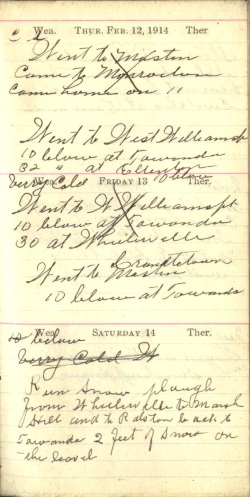 Wea. THUR. FEB. 12, 1914 Ther
Went to Marsten
Came to Monroeton
Came home on 11
Went to West Williamsport
10 blow at Towanda
32 " at
10 blow
Very Cold
Wea. FRIDAY 13 Ther.
Went to W Williamspt
10 blow at Towanda
30 at Wheelerville
Went to Marstin
10 blow at Towanda
Wea. SATURDAY 14 Ther.
10 below
Very Cold
Run Snow plough
from Wheelerville to Marsh
Hill and to Ralston back to
Towanda 2 feet of Snow on
the level